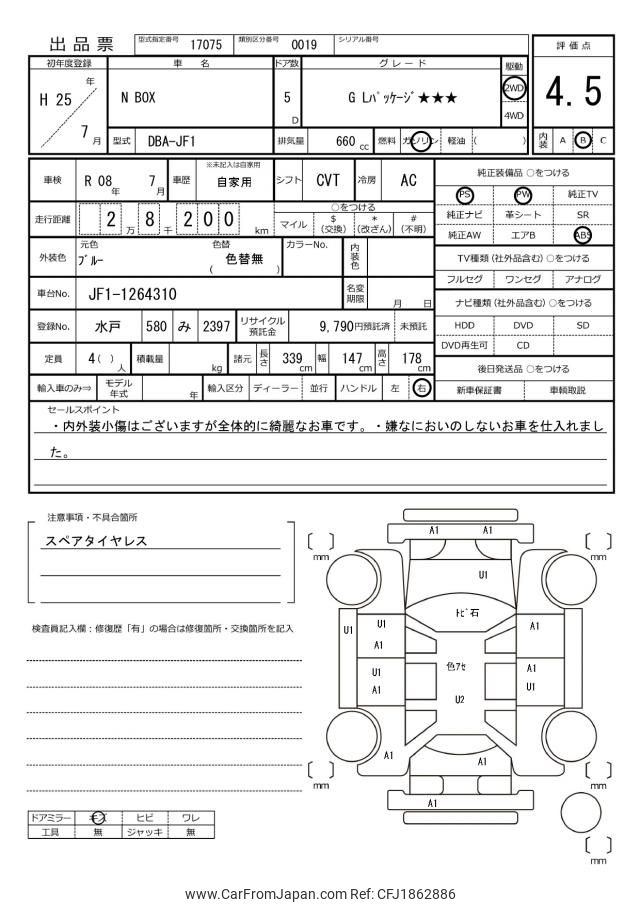 出品票 型式指定番号 17075 類別区分番号 0019 シリアル番号
評価点
4.5
内装 A B C
初年度登録 車名 ドア数 グレード 駆動
H 25 年 7 月 N BOX 5 D G Lﾊﾟｯｹｰｼﾞ★★★ 2WD 4WD
型式 DBA-JF1 排気量 660 cc 燃料 ガソリン 軽油 ( )
車検 R 08 年 7 月 車歴 ※未記入は自家用 自家用 シフト CVT 冷房 AC
走行距離 2 万 8 千 200 km ○をつける
マイル $ (交換) * (改ざん) # (不明)
外装色 元色 ﾌﾞﾙｰ 色替 ( 色替無 ) カラーNo. 内装色
車台No. JF1-1264310 名変期限 月 日
登録No. 水戸 580 み 2397 リサイクル預託金 9,790円預託済 未預託
定員 4( ) 人 積載量 kg 諸元 長さ 339 cm 幅 147 cm 高さ 178 cm
輸入車のみ⇒ モデル年式 年 輸入区分 ディーラー 並行 ハンドル 左 右
純正装備品 ○をつける
PS PW 純正TV
純正ナビ 革シート SR
純正AW エアB ABS
TV種類 (社外品含む) ○をつける
フルセグ ワンセグ アナログ
ナビ種類 (社外品含む) ○をつける
HDD DVD SD
DVD再生可 CD
後日発送品 ○をつける
新車保証書 車輌取説
セールスポイント
・内外装小傷はございますが全体的に綺麗なお車です。・嫌なにおいのしないお車を仕入れまし
た。
注意事項・不具合箇所
スペアタイヤレス
検査員記入欄：修復歴「有」の場合は修復箇所・交換箇所を記入
ドアミラー キズ ヒビ ワレ
工具 無 ジャッキ 無
A1 A1
mm mm
U1
ﾄﾋﾞ石
U1 U1 A1
A1
色ｱｾ
U1 A1
A1 U1
U2
A1 A1
mm mm
A1
mm
www.CarFromJapan.com Ref: CFJ1862886